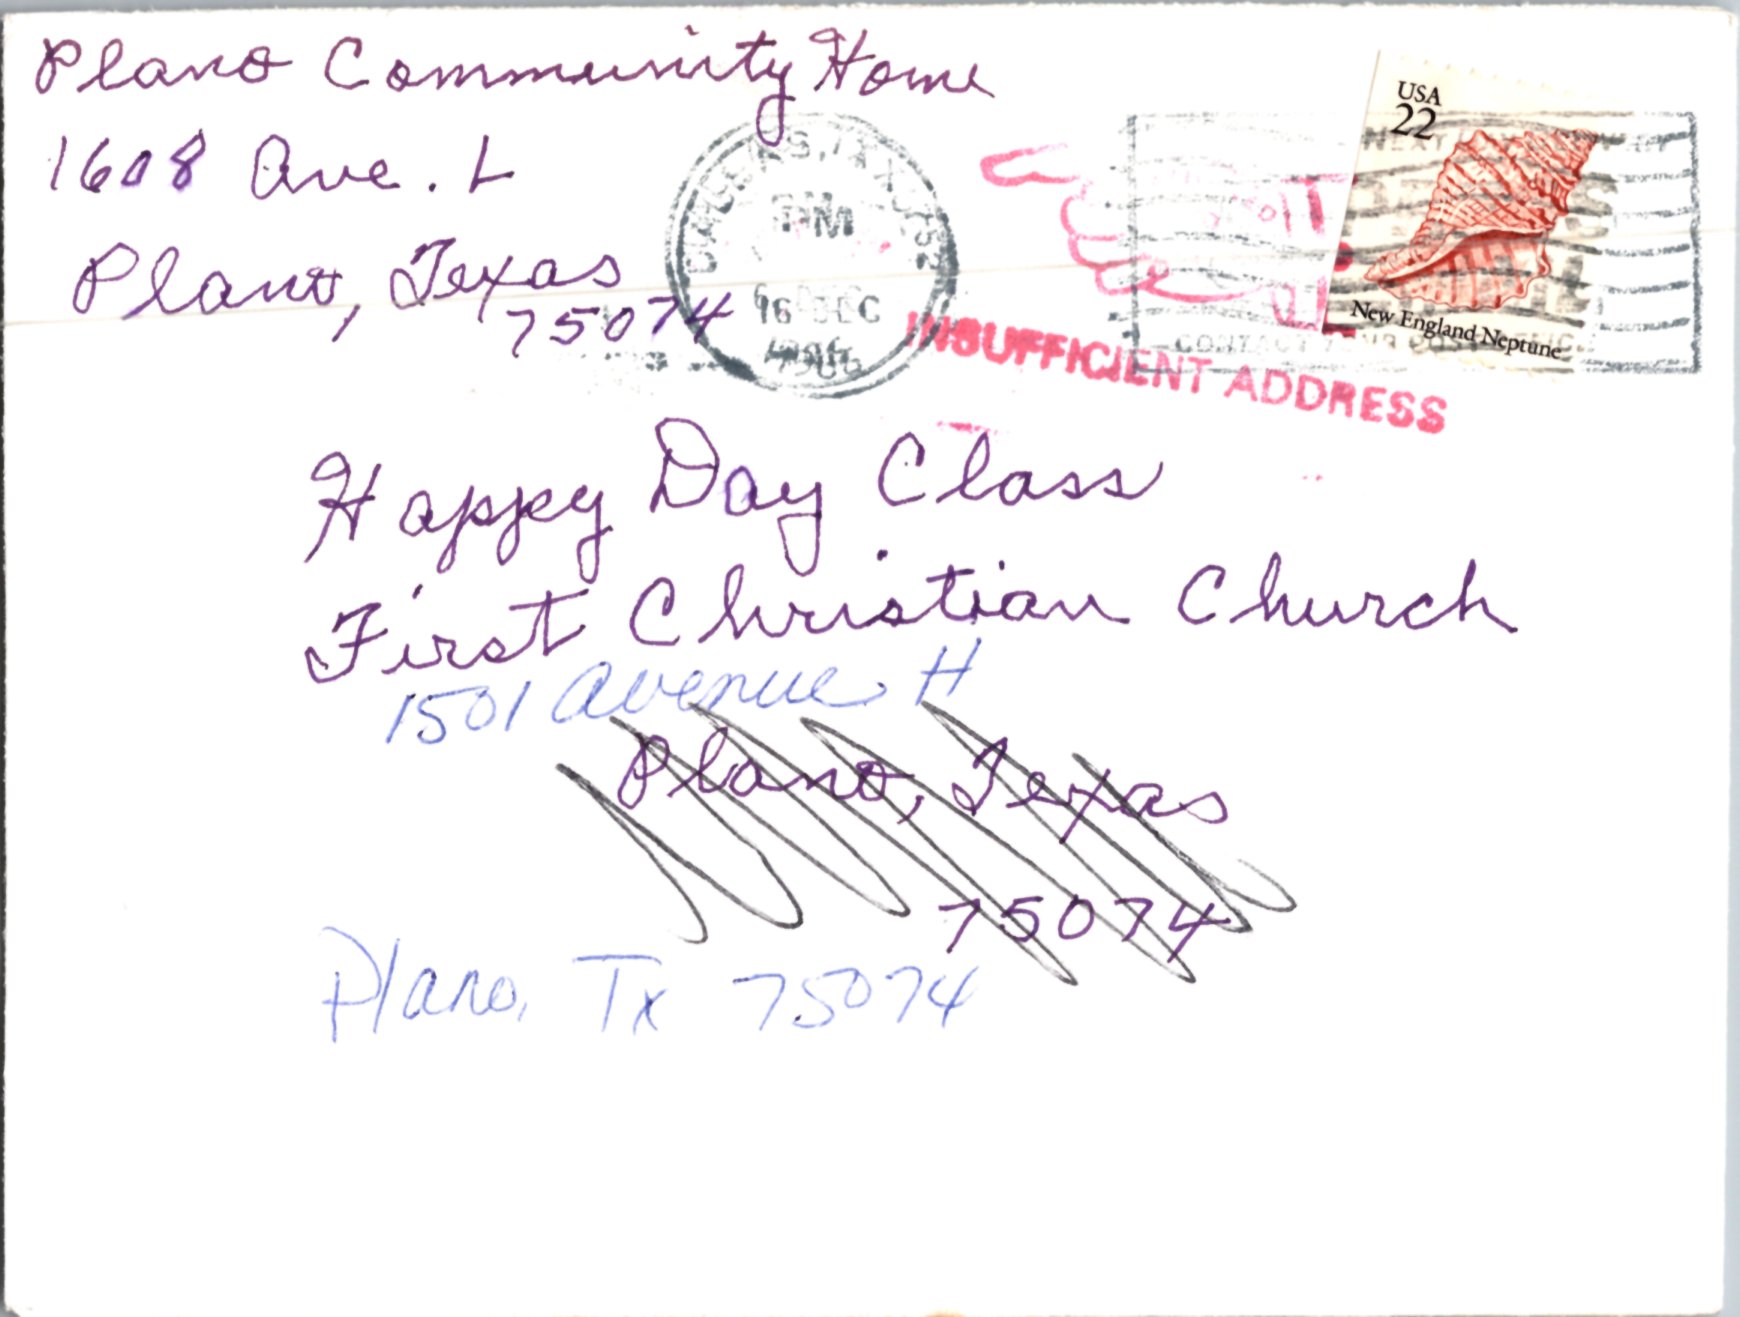 Plano Community Home
1608 Ave. L
Plano, Texas
75074
DALLAS, TX
PM
16 DEC
1986
USA
22
New England Neptune
INSUFFICIENT ADDRESS
Happy Day Class
First Christian Church
1501 Avenue H
Plano, Texas
75074
Plano, Tx 75074